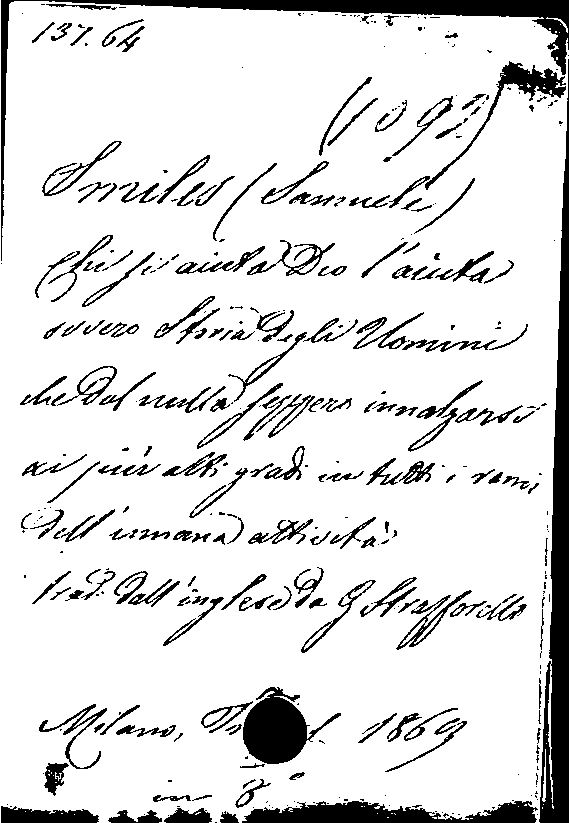 137.64
(1092)
Smiles (Samuele)
Chi si aiuta Dio l'aiuta
ovvero Storia degli Uomini
che dal nulla seppero innalzarsi
ai più alti gradi in tutti i rami
dell'umana attività
trad. dall'inglese da G Strafforello
Milano, 1869
in 8°